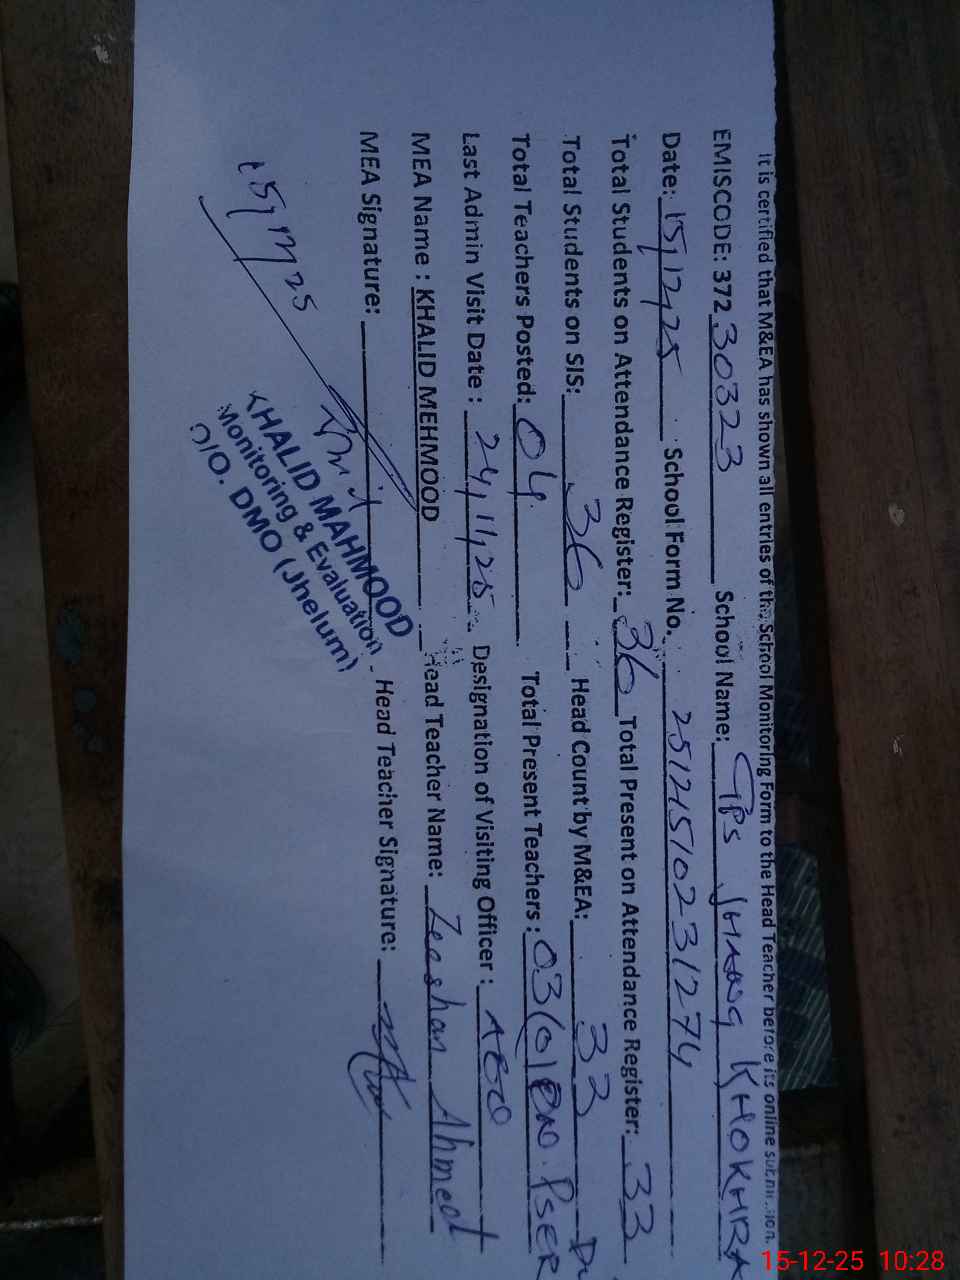 It is certified that M&EA has shown all entries of the School Monitoring Form to the Head Teacher before its online submission.
EMISCODE: 37230323 School Name: GPS JHANG KHOKHRA
Date: 15,12,25 School Form No. 25121510231274
Total Students on Attendance Register: 36 Total Present on Attendance Register: 33
Total Students on SIS: 36 Head Count by M&EA: 33
Total Teachers Posted: 04 Total Present Teachers: 03 PSER
Last Admin Visit Date : 24,11,25 Designation of Visiting Officer : AEO
MEA Name : KHALID MEHMOOD Head Teacher Name: Zeeshan Ahmed
MEA Signature: Head Teacher Signature:
KHALID MAHMOOD
Monitoring & Evaluation
O/O. DMO (Jhelum)
15-12-25 10:28